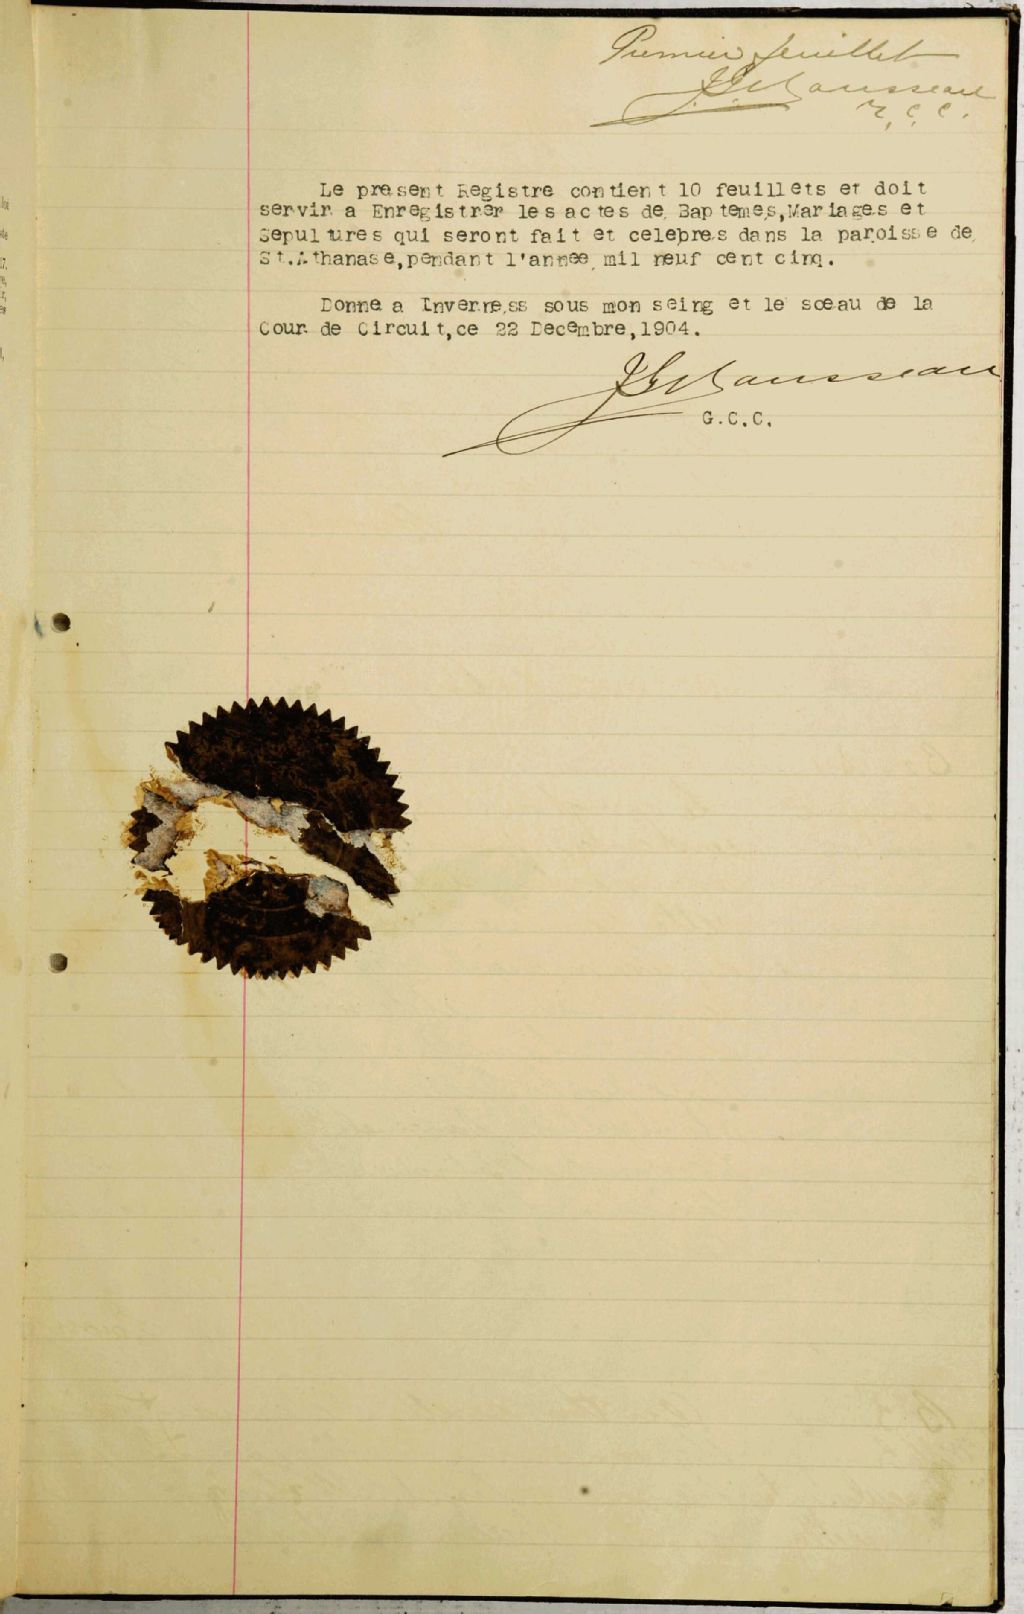 Premier feuillet
Rousseau
G.C.C.
Le present Registre contient 10 feuillets et doit
servir a Enregistrer les actes de Baptemes, Mariages et
Sepultures qui seront fait et celebres dans la paroisse de
St.Athanase, pendant l'annee mil neuf cent cinq.
Donne a Inverness sous mon seing et le sceau de la
Cour de Circuit, ce 22 Decembre, 1904.
Rousseau
G.C.C.